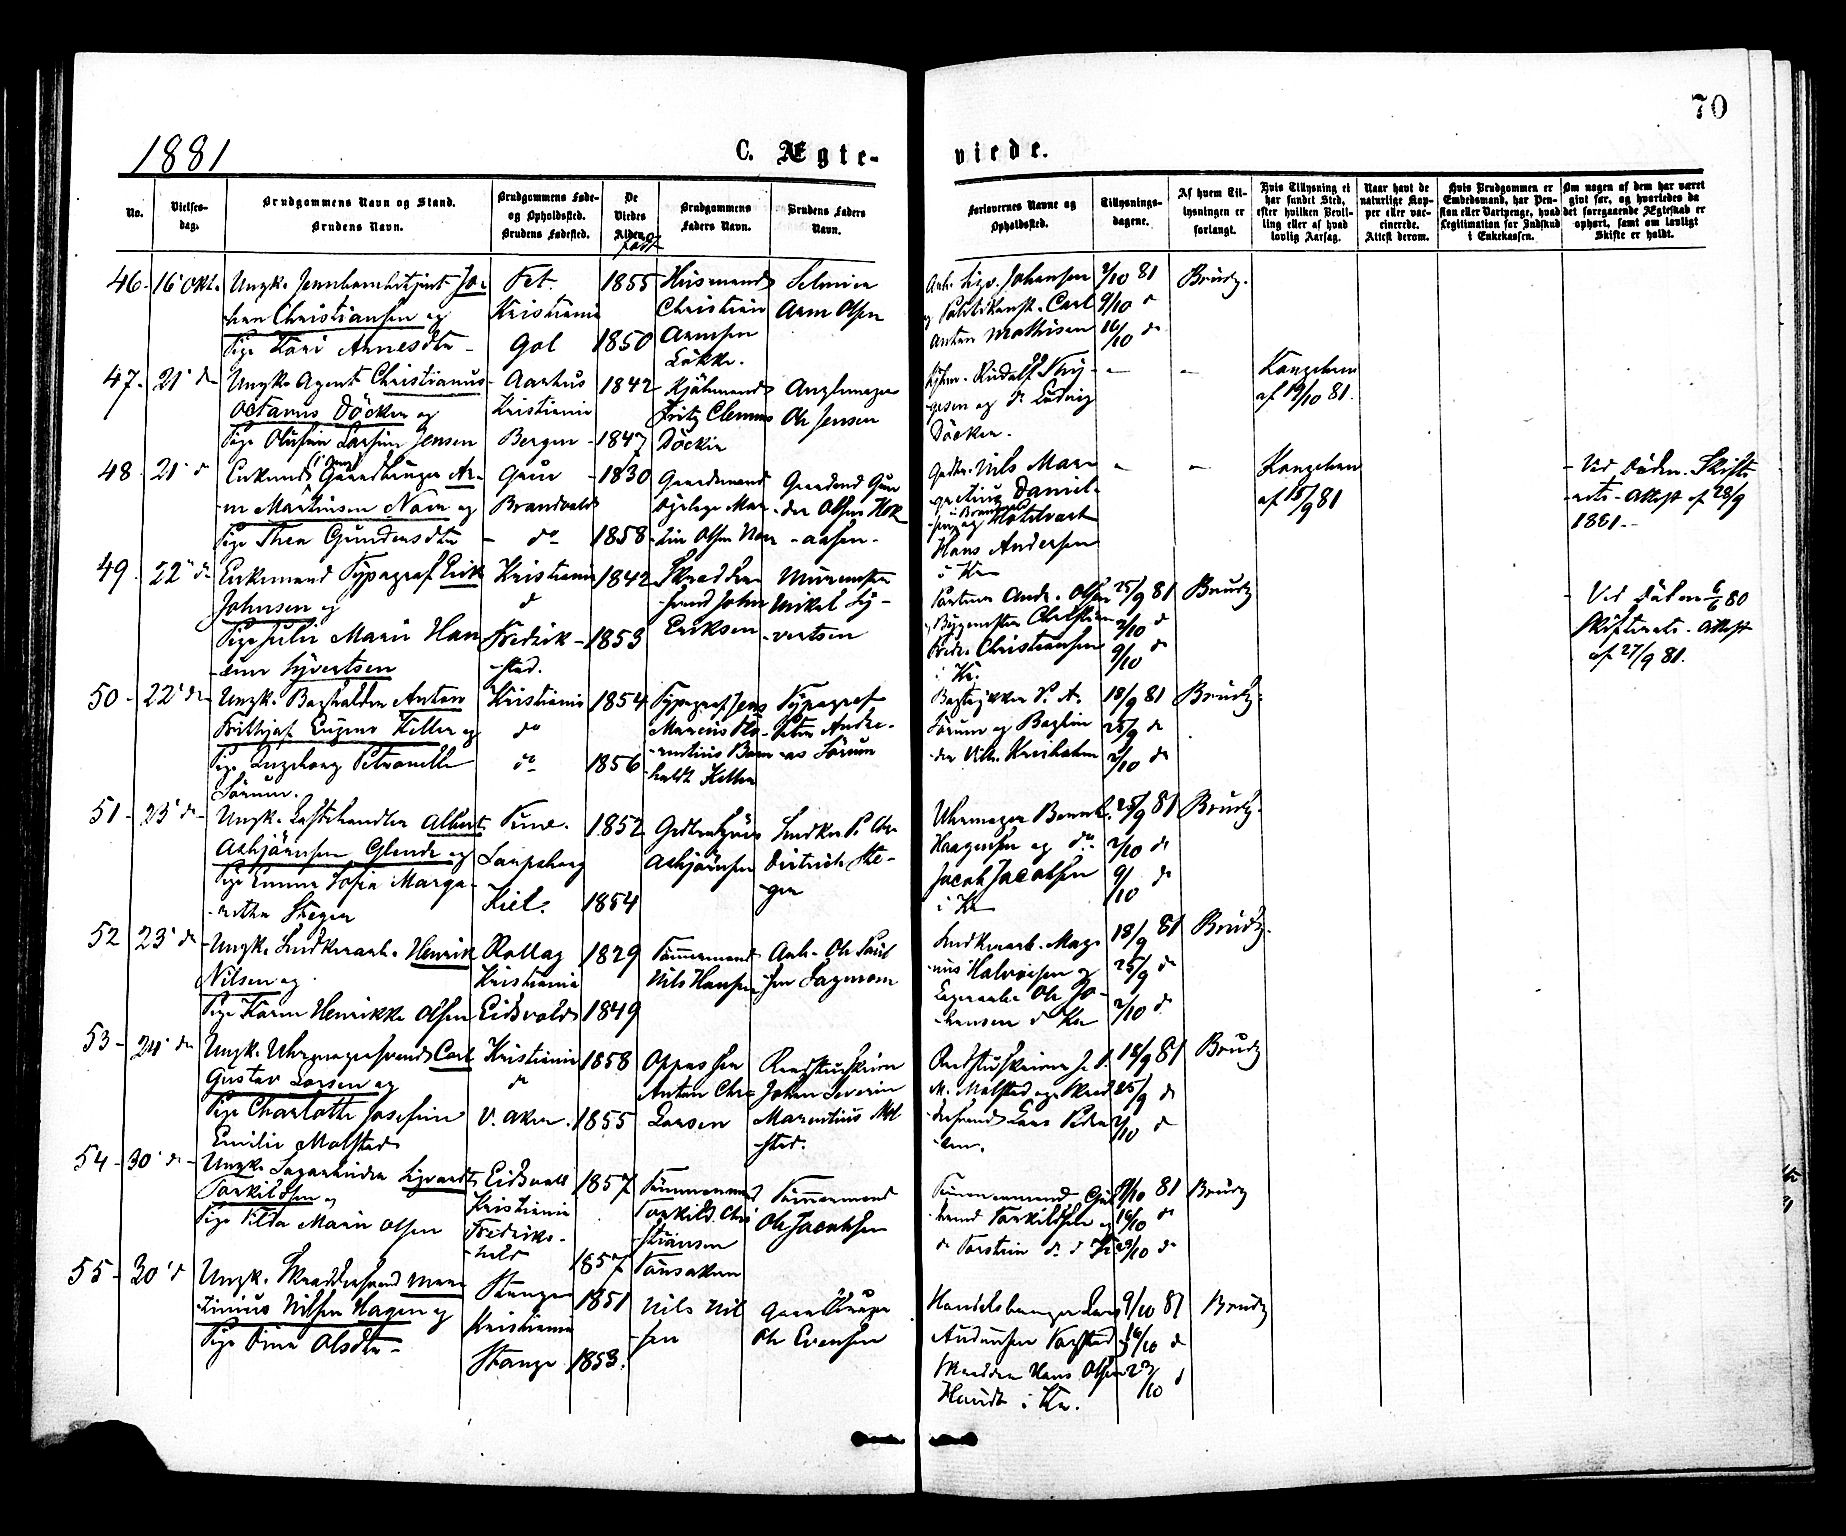 70
1881
C. Ægte-
viede.
No.
Vielses-
dag.
Brudgommens Navn og Stand.
Brudens Navn.
Brudgommens Føde-
og Opholdssted.
Brudens Fødested.
De
Viedes
Alder.
født
Brudgommens
Faders Navn.
Brudens Faders
Navn.
Forlovernes Navne og
Opholdssted.
Tillysnings-
dagene.
Af hvem Til-
lysningen er
forlangt.
Hvis Tillysning ei
har fundet Sted,
efter hvilken Bevil-
ling eller af hvad
lovlig Aarsag.
Naar havt de
naturlige Kop-
per eller vac-
cinerede.
Attest derom.
Hvis Brudgommen er
Embedsmand, har Pen-
sion eller Vartpenge, hvad
Legitimation for Indskud
i Enkekassen.
Om nogen af dem har været
givt før, og hvorledes da
det foregaaende Ægteskab er
ophørt, samt om lovligt
Skifte er holdt.
46 - 16' Okt.
Ungk.
Christiansen og
Pige Kari Arnesdtr
Fet.
Kristiania
Gol
1855
1850
Husmand
Christian
Arnesen
Løkke.
Arne Olsen
Johansen
Carl
Anton Mathisen
2/10 81
9/10 d
16/10 do
Brudg.
47 - 21' do
Ungk. Agent Christianus
Octavus Döcker og
Pige Larsine Jensen
Aarhus
Kristiania
Bergen
1842
1847
Kjøbmand
Fritz Clemens
Döcker
Ole Jensen
Rudolf Thy-
gesen og do Ludvig
Döcker.
-
-
Kongebrev
af 19/10 81.
48 - 21' d
Enkemand Gaardbruger Ar-
ne Martinsen Noer og
Pige Thea Gundersdtr
Grue
Brandvold
do
1830
1858
Gaardmand
Mar-
tin Olsen Noer
Gaardmd Gun
der Olsen
-aasen.
Gbr. Nils
Daniel-
sen og
Hans Andersen
i Kr
-
-
Kongebrev
af 15/9 81
Ved Døden. Skifte-
rets-Attest af 28/9
1881 -
49 - 22' do
Enkemand Typograf Erik
Johnsen og
Pige Julie Marie Han
sine Syvertsen
Kristiania
d
Fredrik-
stad.
1842
1853
Skrædder
svend John
Eriksen
Murmester
Mikal Sy-
vertsen
Andr. Olsen
Christian
Fredr. Christiansen
i Kr.
25/9 81
2/10 d
9/10 do
Brudg
Ved Døden 6/6 80
Skifterets-Attest
af 27/9 81.
50 - 22' do
Ungk. Bogholder Anton
Frithjof Eugen Keller og
Pige Ingeborg Petronelle
Sørum.
Kristiania
do
do
1854
1856
Typograf Jens
Marius Flo-
rentius Born
holdt Keller
Typograf
Peter Andre-
as Sørum
Bogtrykker P. A.
Sørum og Bogbin
der Vilh.
18/9 81
25/9 do
2/10 do
Brudg.
51 - 23' do
Ungk. Albert
Asbjørnsen Glende og
Pige Emma Sofia Marga-
retha Steger
Tune.
Sarpsborg
Kiel.
1852
1854
Asbjørnsen
Snedker
Dietrich Ste-
ger
Uhrmager
Haagensen og do
Jacob Jacobsen
i Kr
25/9 81
2/10 do
9/10 do
Brudg.
52 23' do
Ungk. Snedkerarb. Henrik
Nilsen og
Pige Karen Henrikke Olsen
Rollag
Kristiania
Eidsvold
1829
1849
Tømmermand
Nils Hansen
Arb. Ole Paul
sen
Snedkerarb. Mag-
nus Halvorsen og
Ole Jo-
hansen d Kr
18/9 81
25/9 do
2/10 d
Brudg.
53 - 24' do
Ungk. Uhrmagersvend Carl
Gustav Larsen og
Pige Charlotte Josefine
Emilie Molstad
Kristiania
do
V. Aker.
1858
1855
Oppasser
Anton Chr.
Larsen
Raadstuskriver
Johan Severin
Marentius Mol
stad.
Raadstuskriver J. S.
M. Molstad og Skræd
dersvend Lars Peder
sen.
18/9 81
25/9 do
2/10 do
Brudg
54 - 30' do
Ungk. Sigvardt
Torkildsen og
Pige Tilda Marie Olsen
Eidsvold
Kristiania
Fredriks-
hald
1857
1857
Tømmermand
Torkild Chri
stiansen
Tønsaker
Tømmermand
Ole Jacobsen
Tømmermand Gul
brand Torkildsen og
do Torstein do d Kr
9/10 81
16/10 do
23/10 do
Brudg
55 - 30' d
Ungk. Skræddersvend Mar
tinius Nilsen Hagen og
Pige Tina Olsdtr
Stange
Kristiania
Stange
1851
1853.
Nils Nil
sen
Gaardbruger
Ole Evensen
Handelsborger Lars
Audunsen
Skrædder Hans Olsen
i Kr.
9/10 81
16/10 do
23/10 d
Brudg